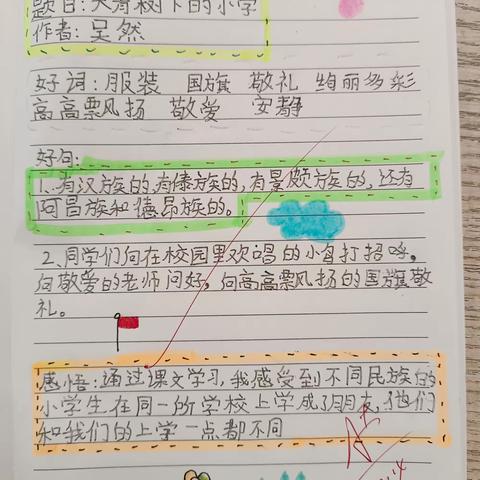 题目:大青树下的小学
作者:吴然
好词:服装 国旗 敬礼 绚丽多彩
高高飘风扬 敬爱 安静
好句:
1、有汉族的,有傣族的,有景颇族的,还有
阿昌族和德昂族的。
2、同学们向在校园里欢唱的小鸟打招呼,
向敬爱的老师问好,向高高飘风扬的国旗敬
礼。
感悟:通过课文学习,我感受到不同民族的
小学生在同一所学校上学成了朋友,他们
和我们的上学一点都不同
A+